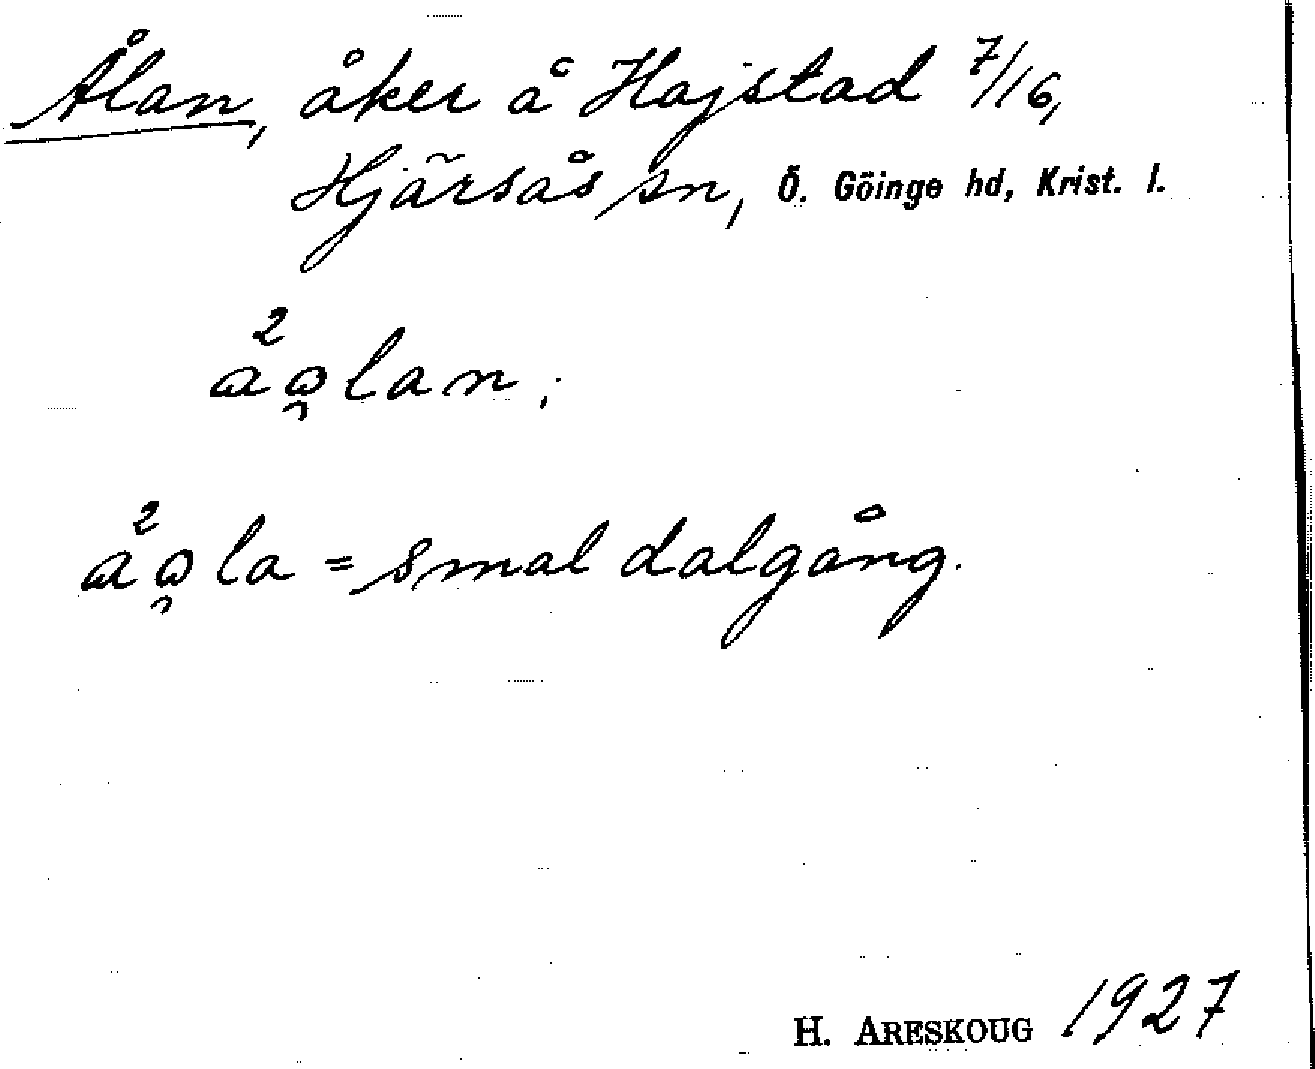 Ålan, åker å Hajstad 7/16,
Hjärsås sn, Ö. Göinge hd, Krist. l.
å²o̯lan;
å²o̯la = smal dalgång.
H. ARESKOUG 1927